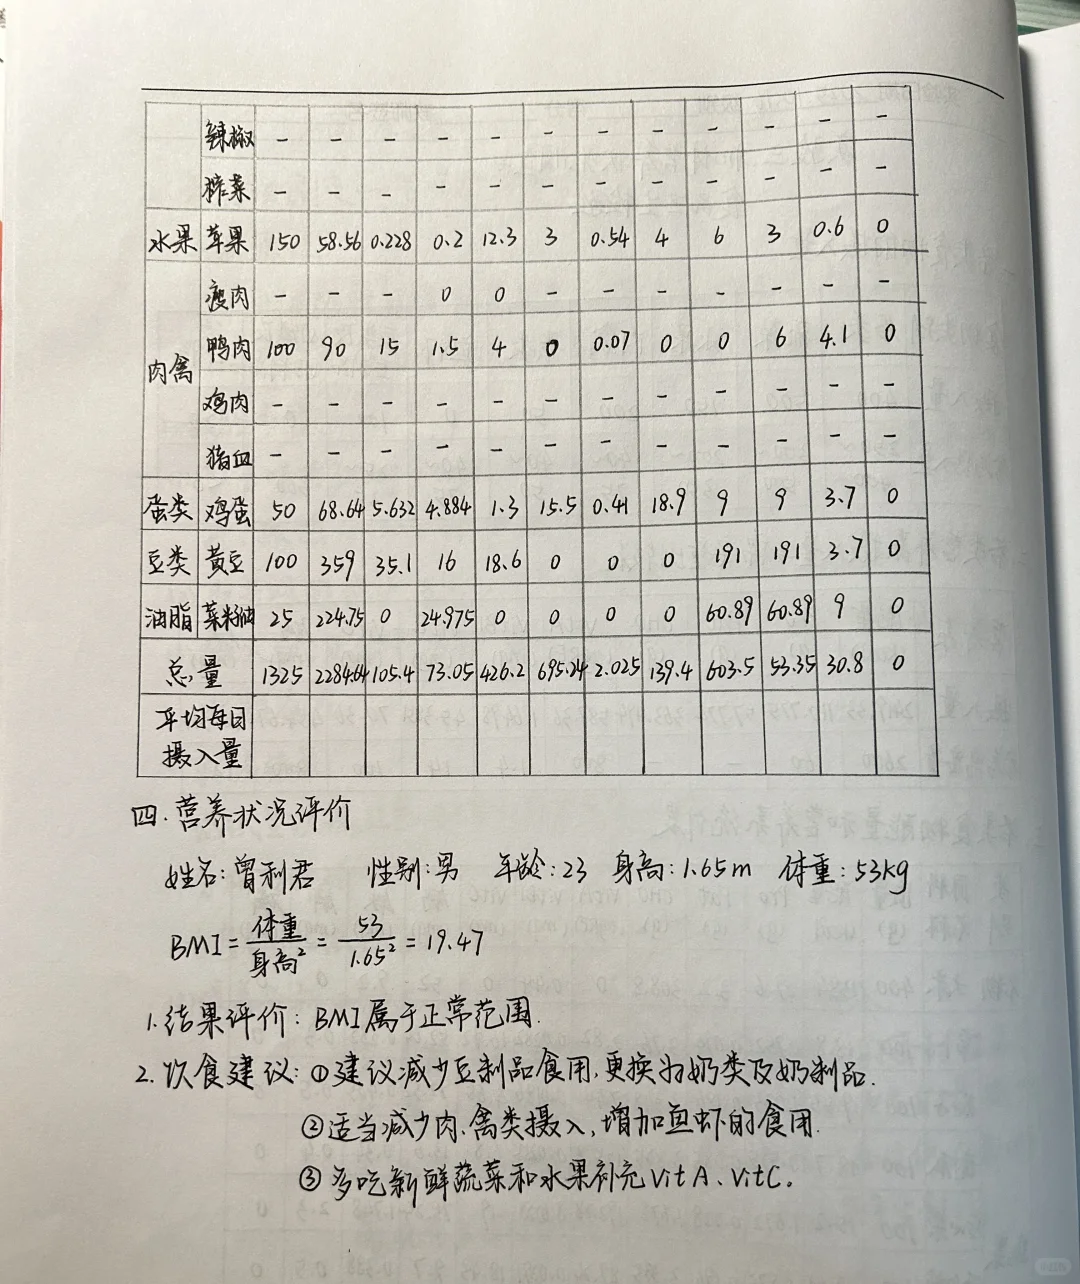 辣椒 - - - - - - - - - - - -
榨菜 - - - - - - - - - - - -
水果 苹果 150 58.56 0.228 0.2 12.3 3 0.54 4 6 3 0.6 0
瘦肉 - - - 0 0 - - - - - - -
肉禽 鸭肉 100 90 15 1.5 4 0 0.07 0 0 6 4.1 0
鸡肉 - - - - - - - - - - - -
猪血 - - - - - - - - - - -
蛋类 鸡蛋 50 68.64 5.632 4.884 1.3 15.5 0.41 18.9 9 9 3.7 0
豆类 黄豆 100 359 35.1 16 18.6 0 0 0 191 191 3.7 0
油脂 菜籽油 25 224.75 0 24.975 0 0 0 0 60.89 60.89 9 0
总量 1325 2284.64 105.4 73.05 426.2 695.24 2.025 139.4 603.5 53.35 30.8 0
平均每日
摄入量
四.营养状况评价
姓名:曾利君 性别:男 年龄:23 身高:1.65m 体重:53kg
BMI=体重/身高²=53/1.65²=19.47
1.结果评价:BMI属于正常范围.
2.饮食建议:①建议减少豆制品食用,更换为奶类及奶制品.
②适当减少肉、禽类摄入,增加鱼虾的食用.
③多吃新鲜蔬菜和水果补充vitA、vitC。